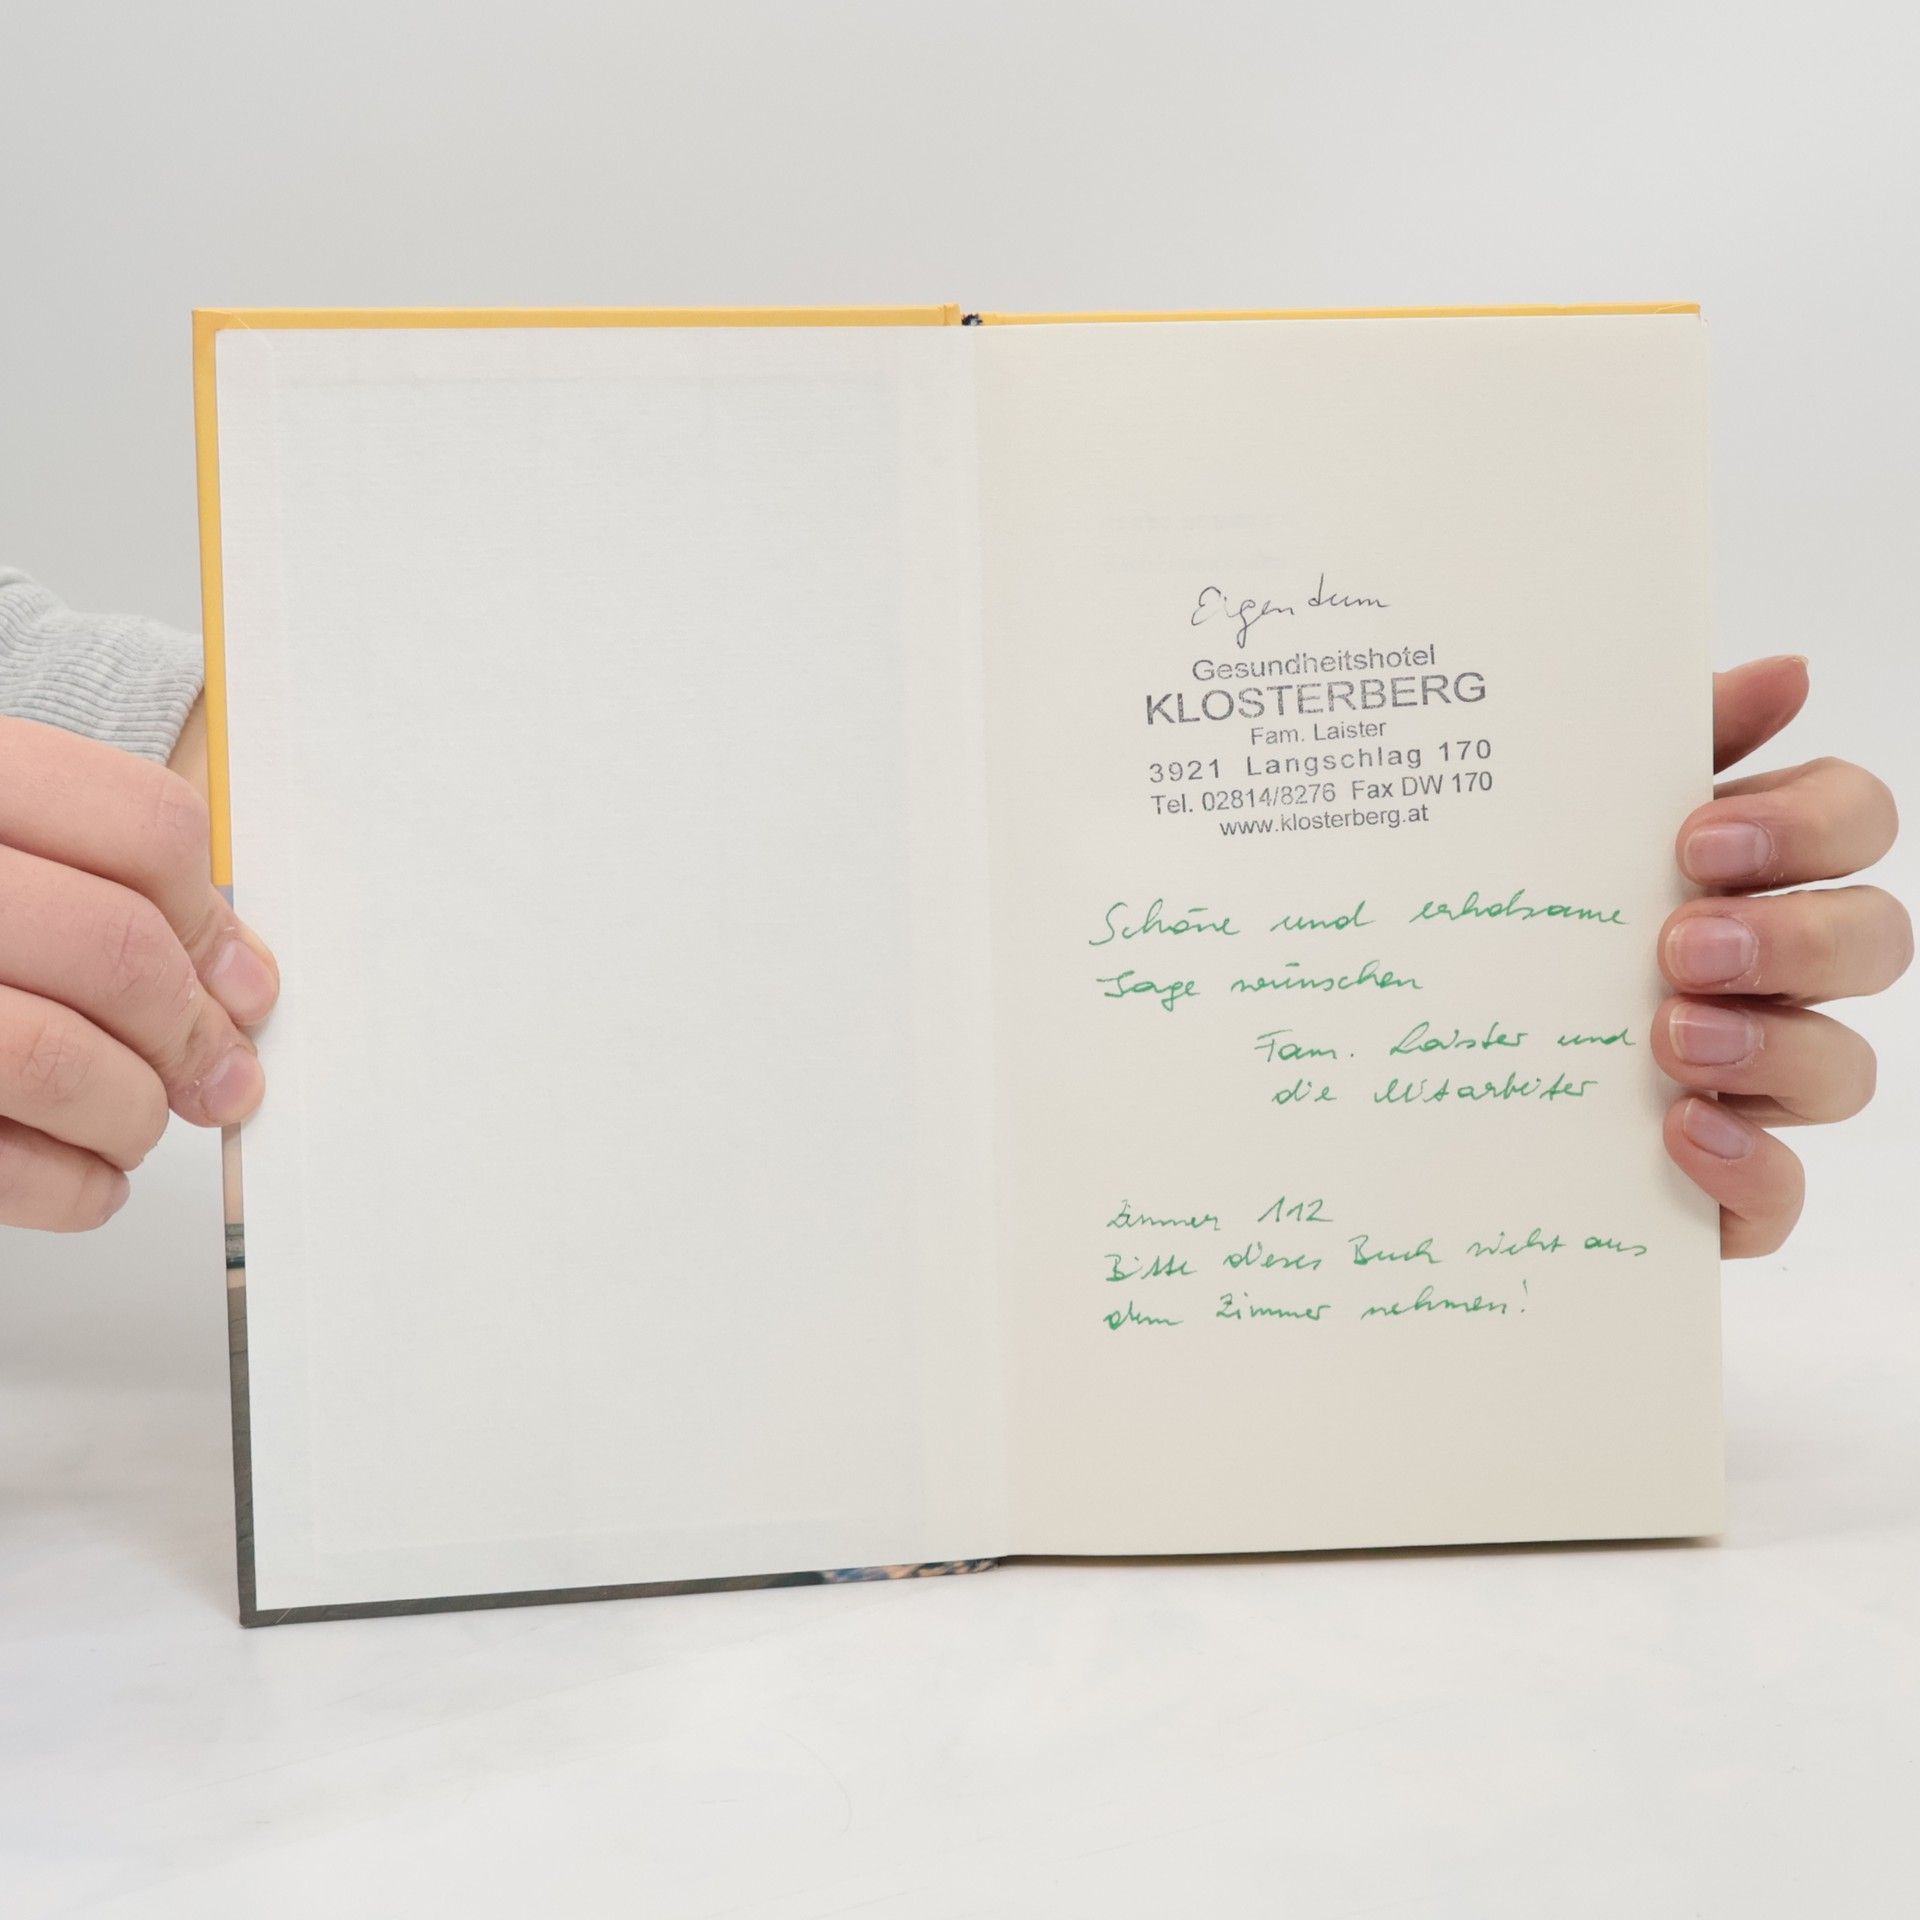 Eigentum
Gesundheitshotel
KLOSTERBERG
Fam. Laister
3921 Langschlag 170
Tel. 02814/8276 Fax DW 170
www.klosterberg.at
Schöne und erholsame
Tage wünschen
Fam. Laister und
die Mitarbeiter
Zimmer 112
Bitte dieses Buch nicht aus
dem Zimmer nehmen!